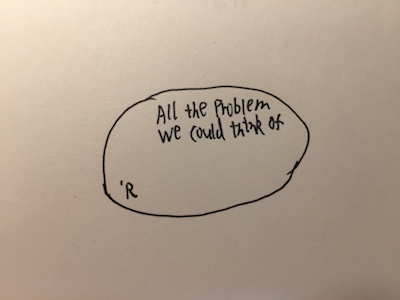 All the Problem
we could think of
'R